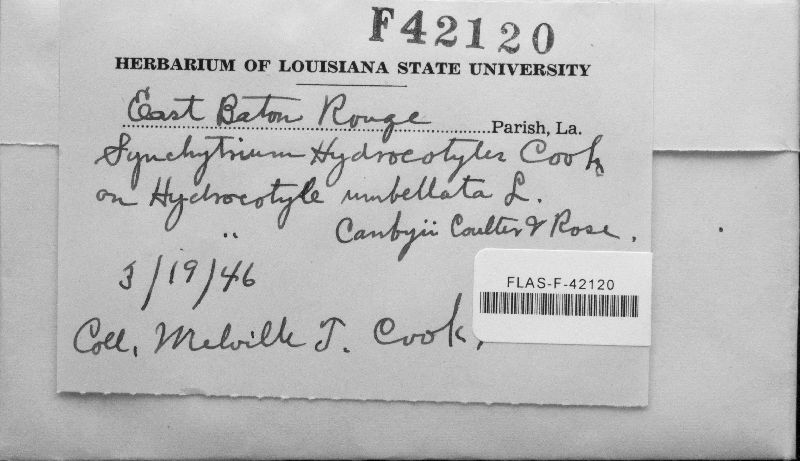 F42120
HERBARIUM OF LOUISIANA STATE UNIVERSITY
East Baton Rouge Parish, La.
Synchytrium Hydrocotyles Cook
on Hydrocotyle umbellata L.
" Canbyii Coulter & Rose.
3/19/46
FLAS-F-42120
Coll. Melville T. Cook.